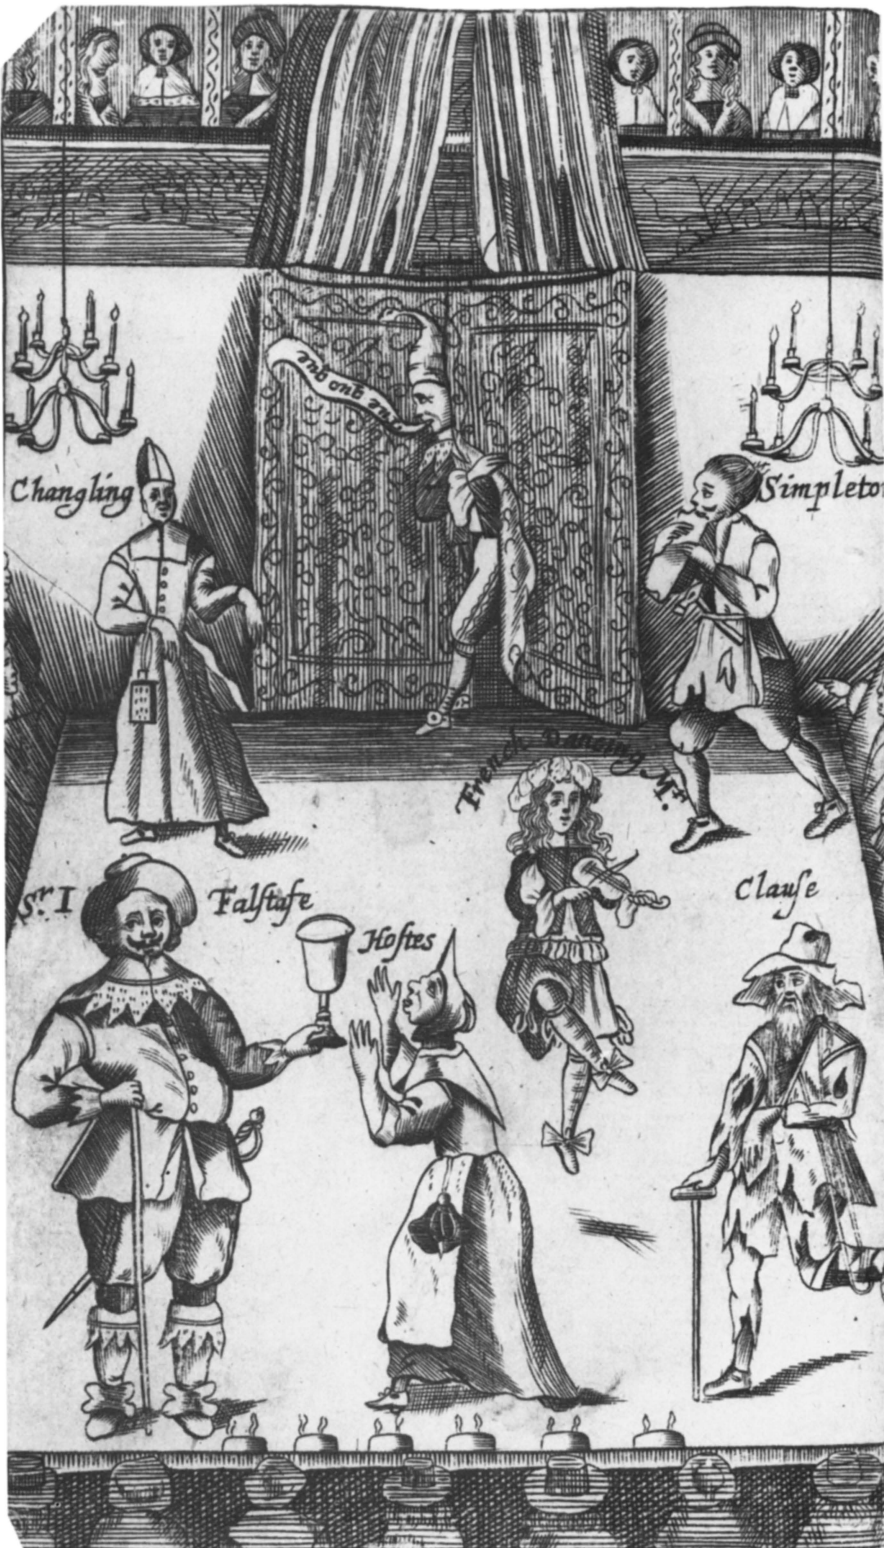 Changling
Simpleto
French Dancing Mr.
Sr. I Falſtafe
Hoſtes
Clauſe